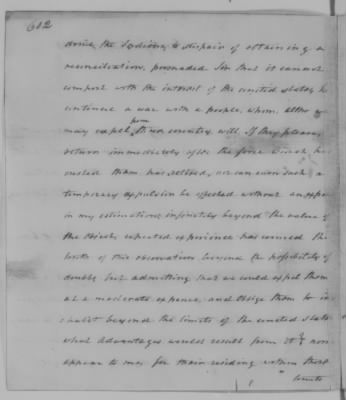 602
drive the Indians, to despair of obtaining a
reconciliation, persuaded Sir that it cannot
comport with the interest of the united states to
continue a war with a people, whom, altho we
may expel from it no country will, if they please,
return immediately after the force which has
ousted them has retired, nor can even such a
temporary expulsion be effected without an expence
in my estimation, infinitely beyond the value of
the objects, repeated experience has evinced the
truth of this observation beyond the possibility of
doubt, but admitting that we could expel them
at a moderate expence, and oblige them to in
habit beyond the limits of the united states
what advantages would result from it? none
appear to me, for their residing within those
limits